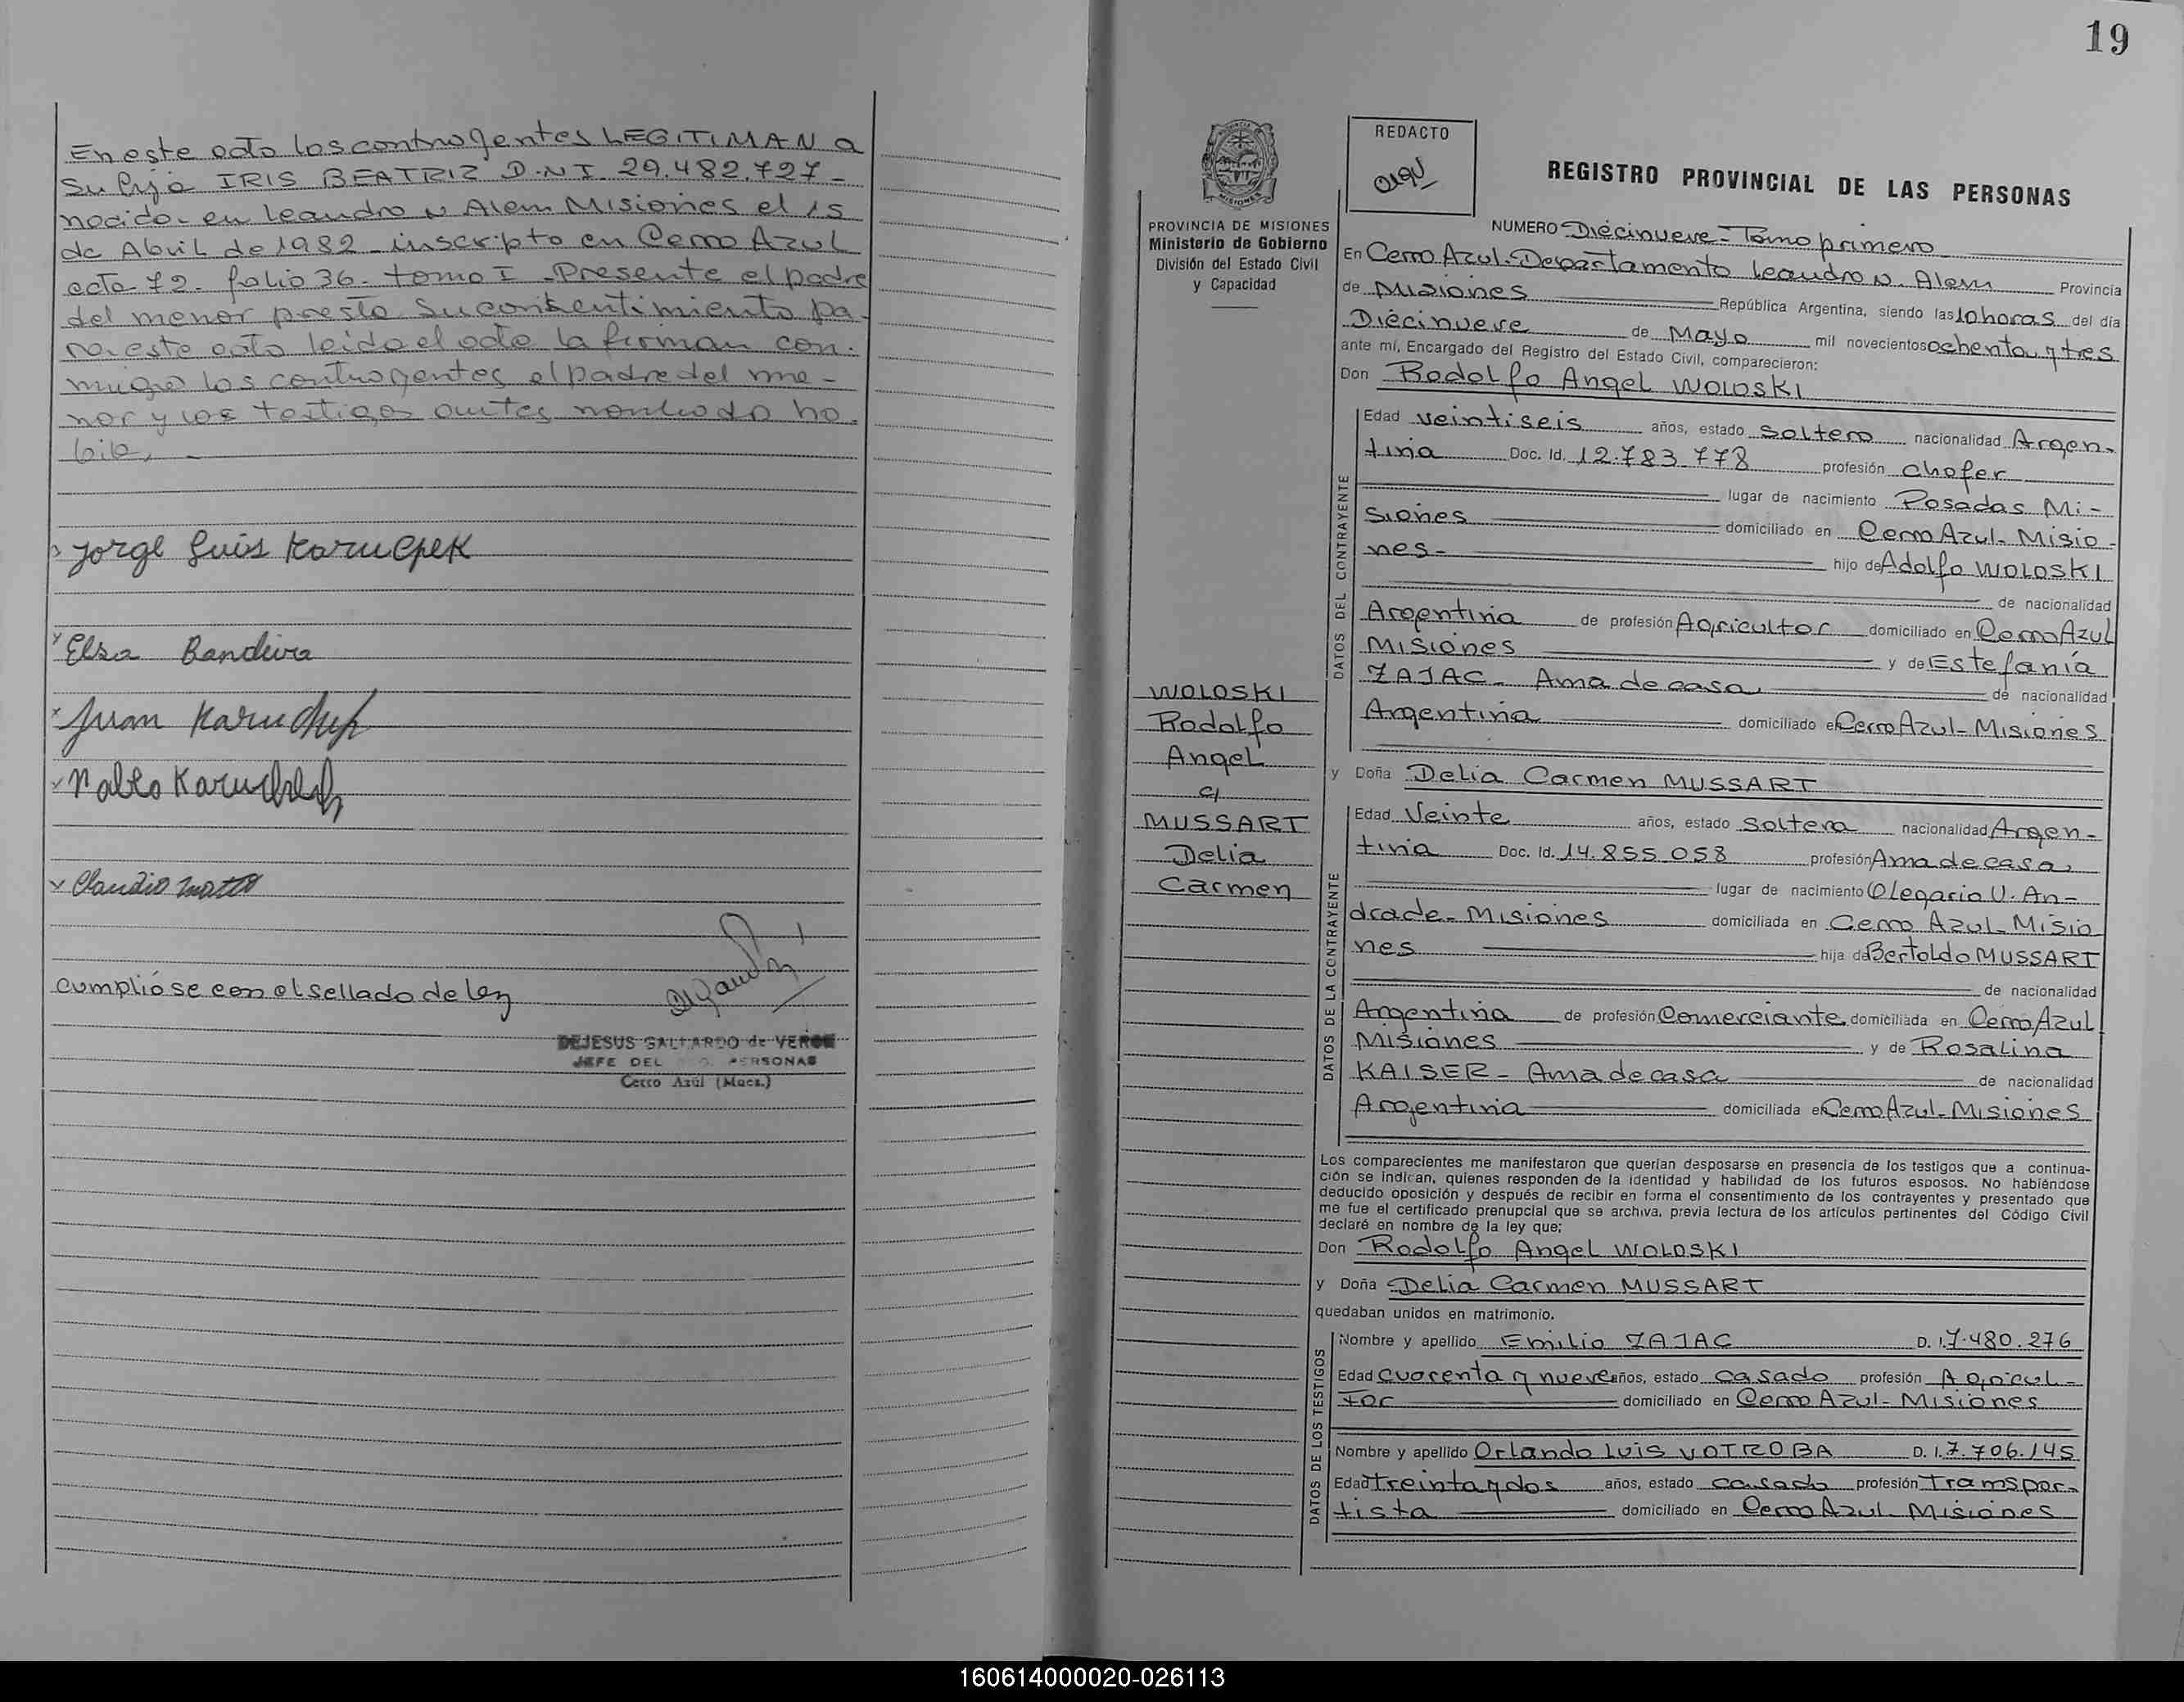 En este acto los contrayentes LEGITIMAN a
su hija IRIS BEATRIZ D.N.I. 29.482.727-
nacida en Leandro N Alem Misiones el 15
de Abril de 1982 inscripto en Cerro Azul
acta 72. folio 36. tomo I. Presente el padre
del menor presta su consentimiento pa-
ra este acto leido el acta la firman con-
migo los contrayentes el padre del me-
nor y los testigos antes nombrado ha-
bil.
Jorge Luis Karuchek
Elsa Bandeira
Juan
Pablo
Claudio
cumplióse con el sellado de ley
DEJESUS GALLARDO de VERON
JEFE DEL PERSONAS
Cerro Azúl (Mnes.)
19
REDACTO
REGISTRO PROVINCIAL DE LAS PERSONAS
PROVINCIA DE MISIONES
Ministerio de Gobierno
División del Estado Civil
y Capacidad
WOLOSKI
Rodolfo
Angel
c/
MUSSART
Delia
Carmen
NUMERO Diécinueve - Tomo primero
En Cerro Azul. Departamento Leandro N. Alem Provincia
de Misiones República Argentina, siendo las 10 horas del día
Diécinueve de Mayo mil novecientos ochenta y tres
ante mí, Encargado del Registro del Estado Civil, comparecieron:
Don Rodolfo Angel WOLOSKI
DATOS DEL CONTRAYENTE
Edad veintiseis años, estado soltero nacionalidad Argen-
tina Doc. Id. 12.783.778 profesión chofer
lugar de nacimiento Posadas Mi-
siones domiciliado en Cerro Azul- Misio-
nes- hijo de Adolfo WOLOSKI
de nacionalidad
Argentina de profesión Agricultor domiciliado en Cerro Azul
Misiones y de Estefanía
ZAJAC- Ama de casa de nacionalidad
Argentina domiciliado en Cerro Azul- Misiones
y Doña Delia Carmen MUSSART
DATOS DE LA CONTRAYENTE
Edad Veinte años, estado soltera nacionalidad Argen-
tina Doc. Id. 14.855.058 profesión Ama de casa
lugar de nacimiento Olegario V. An-
drade- Misiones domiciliada en Cerro Azul- Misio
nes hija de Bertoldo MUSSART
de nacionalidad
Argentina de profesión Comerciante domiciliada en Cerro Azul
Misiones y de Rosalina
KAISER- Ama de casa de nacionalidad
Argentina domiciliada en Cerro Azul- Misiones
Los comparecientes me manifestaron que querían desposarse en presencia de los testigos que a continua-
ción se indican, quienes responden de la identidad y habilidad de los futuros esposos. No habiéndose
deducido oposición y después de recibir en forma el consentimiento de los contrayentes y presentado que
me fue el certificado prenupcial que se archiva, previa lectura de los artículos pertinentes del Código Civil
declaré en nombre de la ley que;
Don Rodolfo Angel WOLOSKI
y Doña Delia Carmen MUSSART
quedaban unidos en matrimonio.
DATOS DE LOS TESTIGOS
Nombre y apellido Emilio ZAJAC D. I. 7.480.276
Edad cuarenta y nueve años, estado casado profesión Agricul-
tor domiciliado en Cerro Azul- Misiones
Nombre y apellido Orlando Luis VOTROBA D. I. 7.706.145
Edad treinta y dos años, estado casado profesión Transpor-
tista domiciliado en Cerro Azul Misiones
160614000020-026113